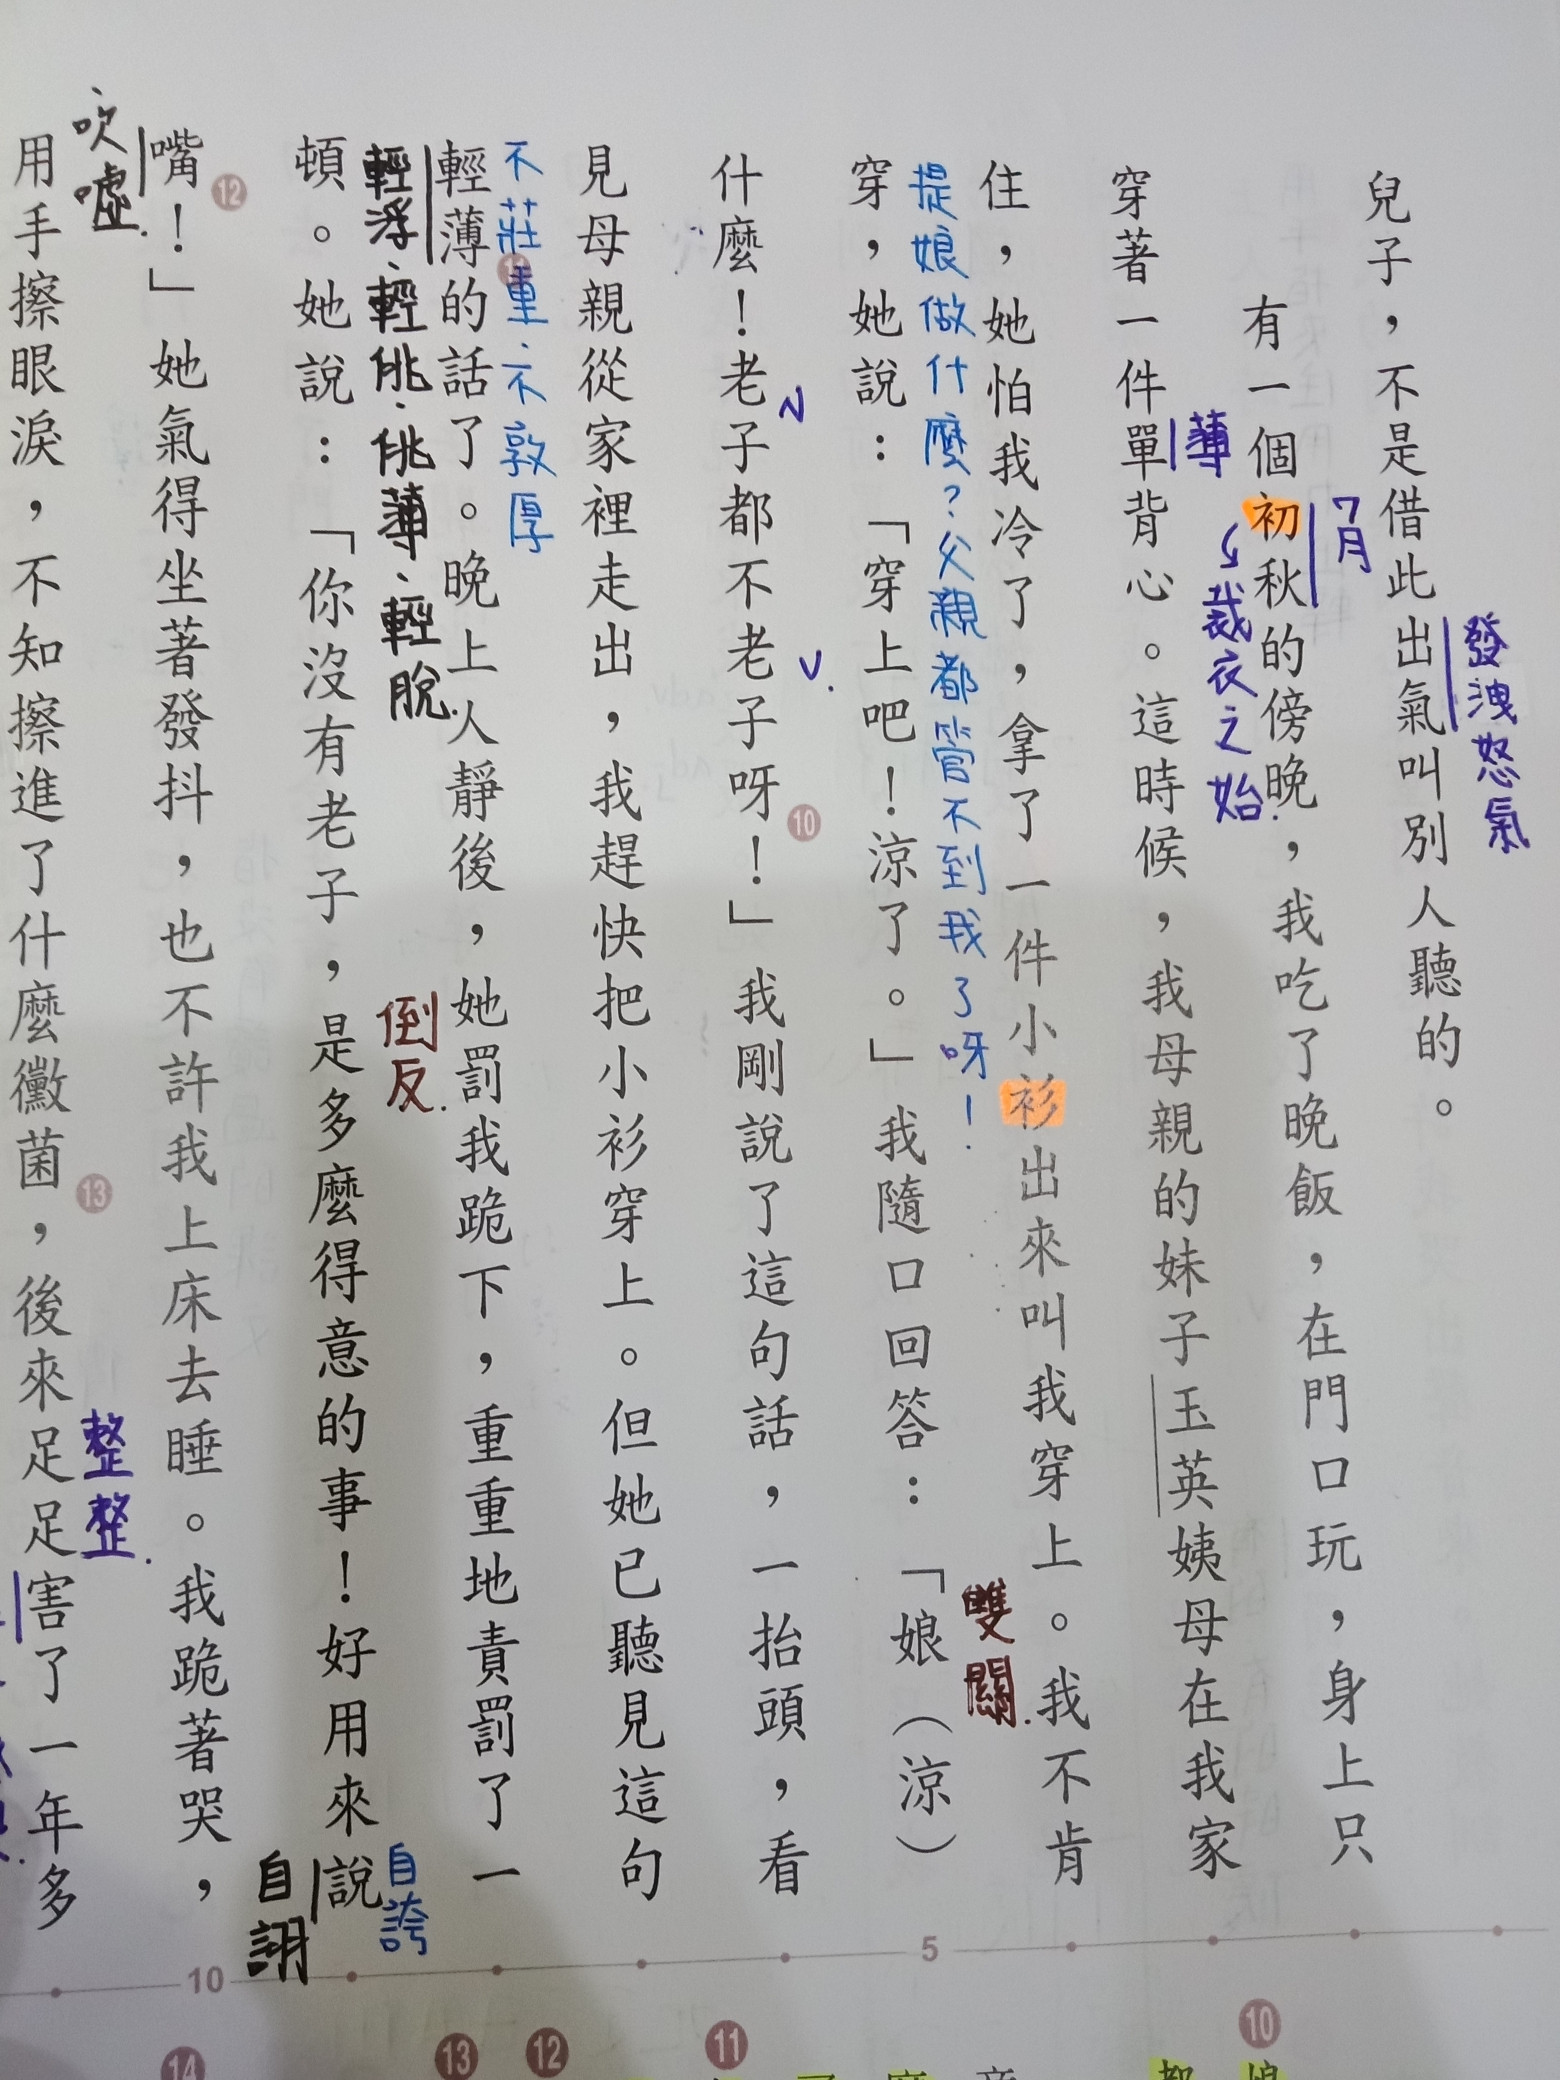 兒子，不是借此出氣叫別人聽的。
發洩怒氣
有一個初秋的傍晚，我吃了晚飯，在門口玩，身上只
7月
裁衣之始.
穿著一件單背心。這時候，我母親的妹子玉英姨母在我家
薄
住，她怕我冷了，拿了一件小衫出來叫我穿上。我不肯
提娘做什麼？父親都管不到我了呀！
穿，她說：「穿上吧！涼了。」我隨口回答：「娘（涼）
雙關.
什麼！老子都不老子呀！」我剛說了這句話，一抬頭，看
N
V.
10
見母親從家裡走出，我趕快把小衫穿上。但她已聽見這句
不莊重、不敦厚
輕薄的話了。晚上人靜後，她罰我跪下，重重地責罰了一
11
輕浮、輕佻、佻薄、輕脫.
倒反.
頓。她說：「你沒有老子，是多麼得意的事！好用來說
自誇
自詡
嘴！」她氣得坐著發抖，也不許我上床去睡。我跪著哭，
12
吹噓.
用手擦眼淚，不知擦進了什麼黴菌，後來足足害了一年多
13
整整.
5
10
10
11
12
13
14